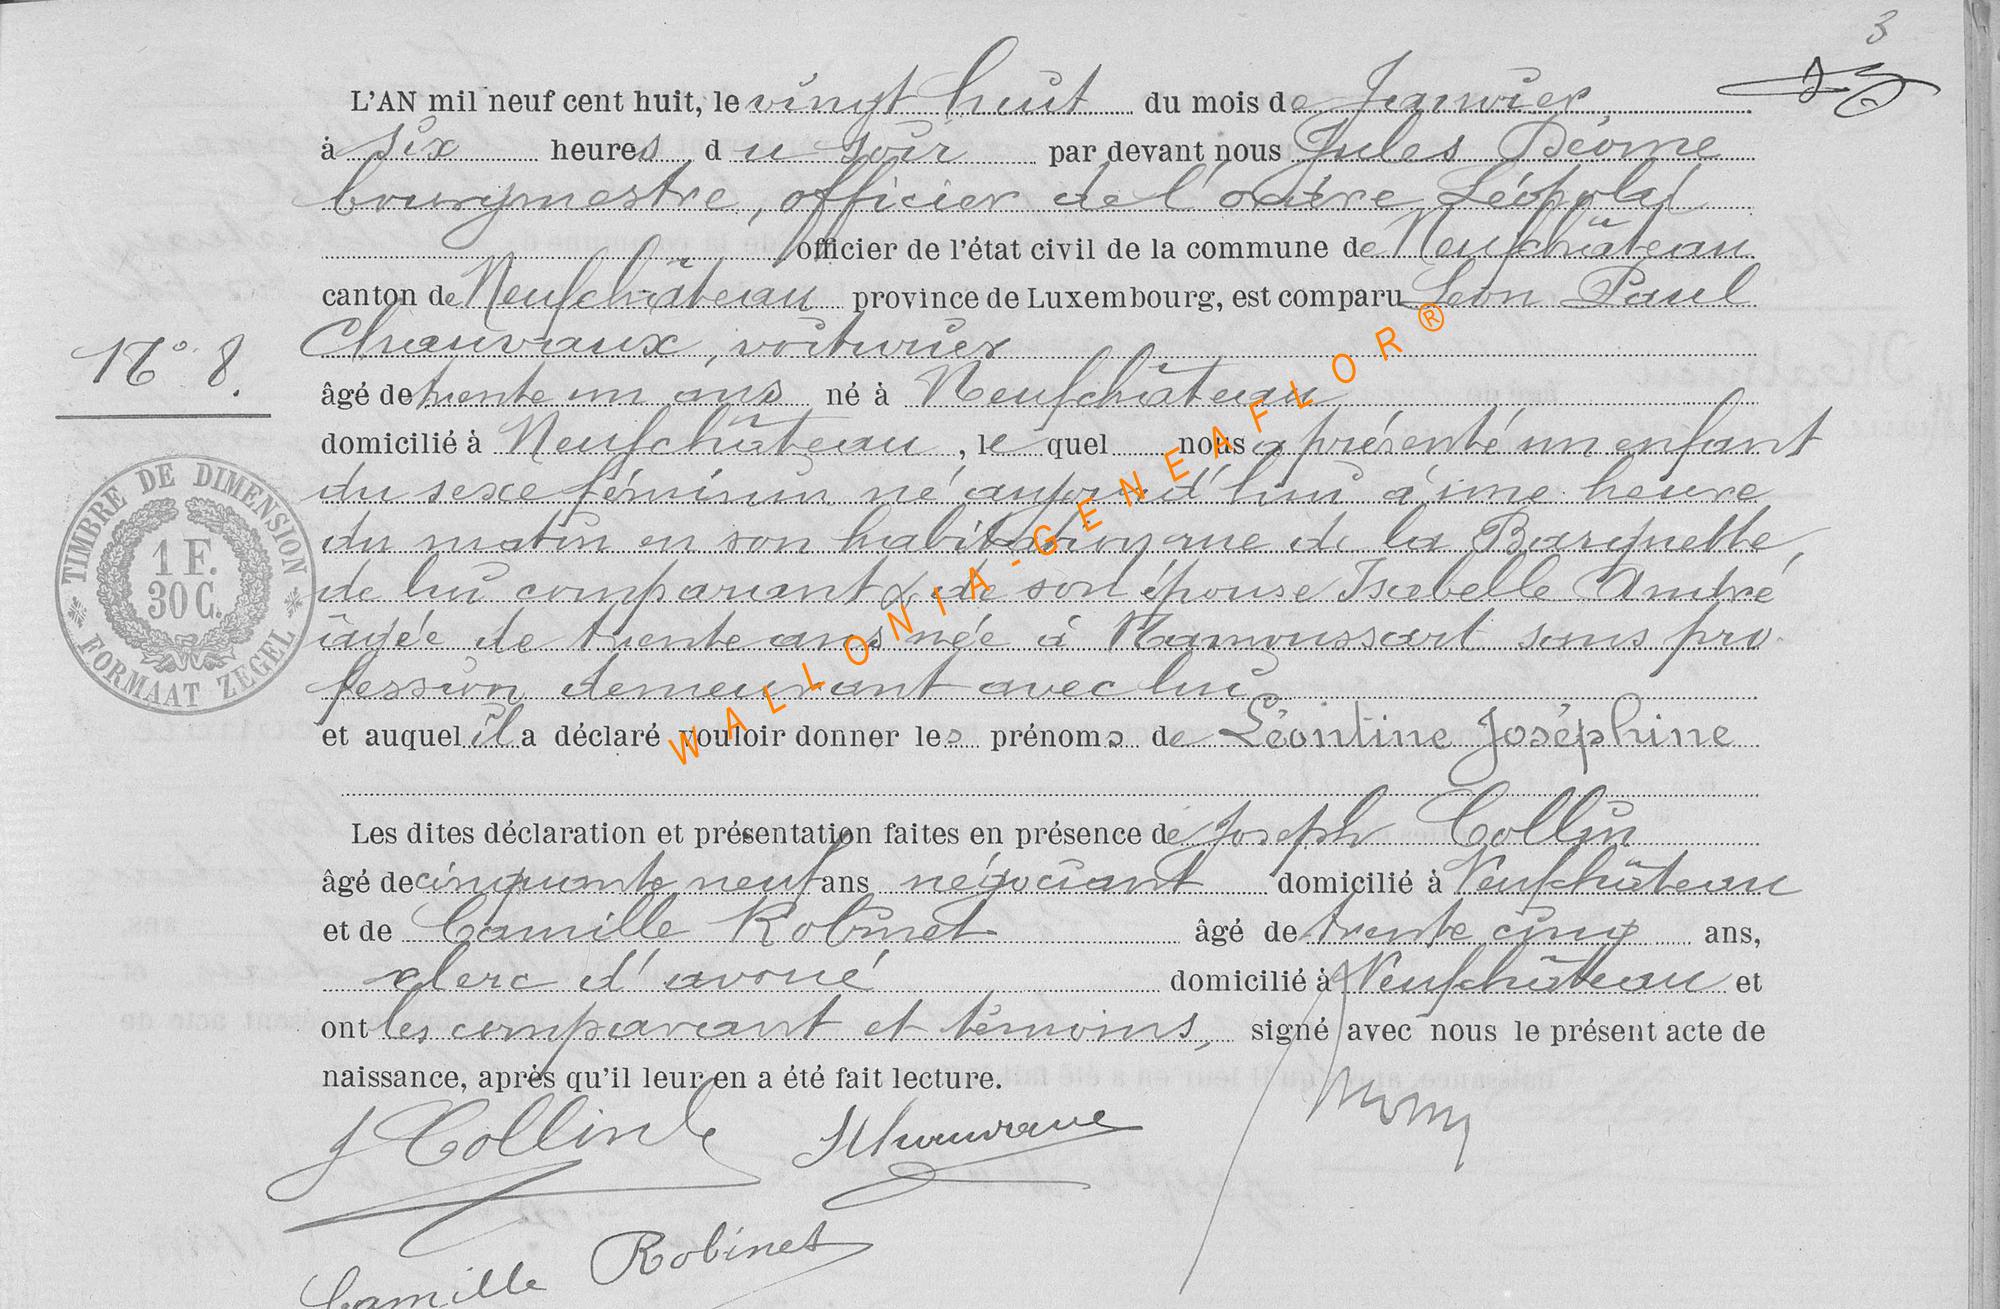 3
L'AN mil neuf cent huit, le vingt huit du mois de Janvier
à six heures du soir par devant nous Jules Déome
bourgmestre, officier de l'ordre Léopold
officier de l'état civil de la commune de Neufchâteau
canton de Neufchâteau province de Luxembourg, est comparu Léon Paul
Chauvaux, voiturier
N° 8.
âgé de trente un ans né à Neufchâteau
domicilié à Neufchâteau, lequel nous a présenté un enfant
du sexe féminin né aujourd'hui à une heure
du matin en son habitation rue de la Barquette,
de lui comparant & de son épouse Isabelle André
âgée de trente ans née à Namoussart sans pro-
fession demeurant avec lui
et auquel il a déclaré vouloir donner les prénoms de Léontine Joséphine
TIMBRE DE DIMENSION
1 F.
30 C.
FORMAAT ZEGEL
Les dites déclaration et présentation faites en présence de Joseph Collin
âgé de cinquante neuf ans négociant domicilié à Neufchâteau
et de Camille Robinet âgé de trente cinq ans,
clerc d'avoué domicilié à Neufchâteau et
ont les comparant et témoins, signé avec nous le présent acte de
naissance, après qu'il leur en a été fait lecture.
J Collin
Chauvaux
Camille Robinet
WALLONIA-GENEAFLOR®